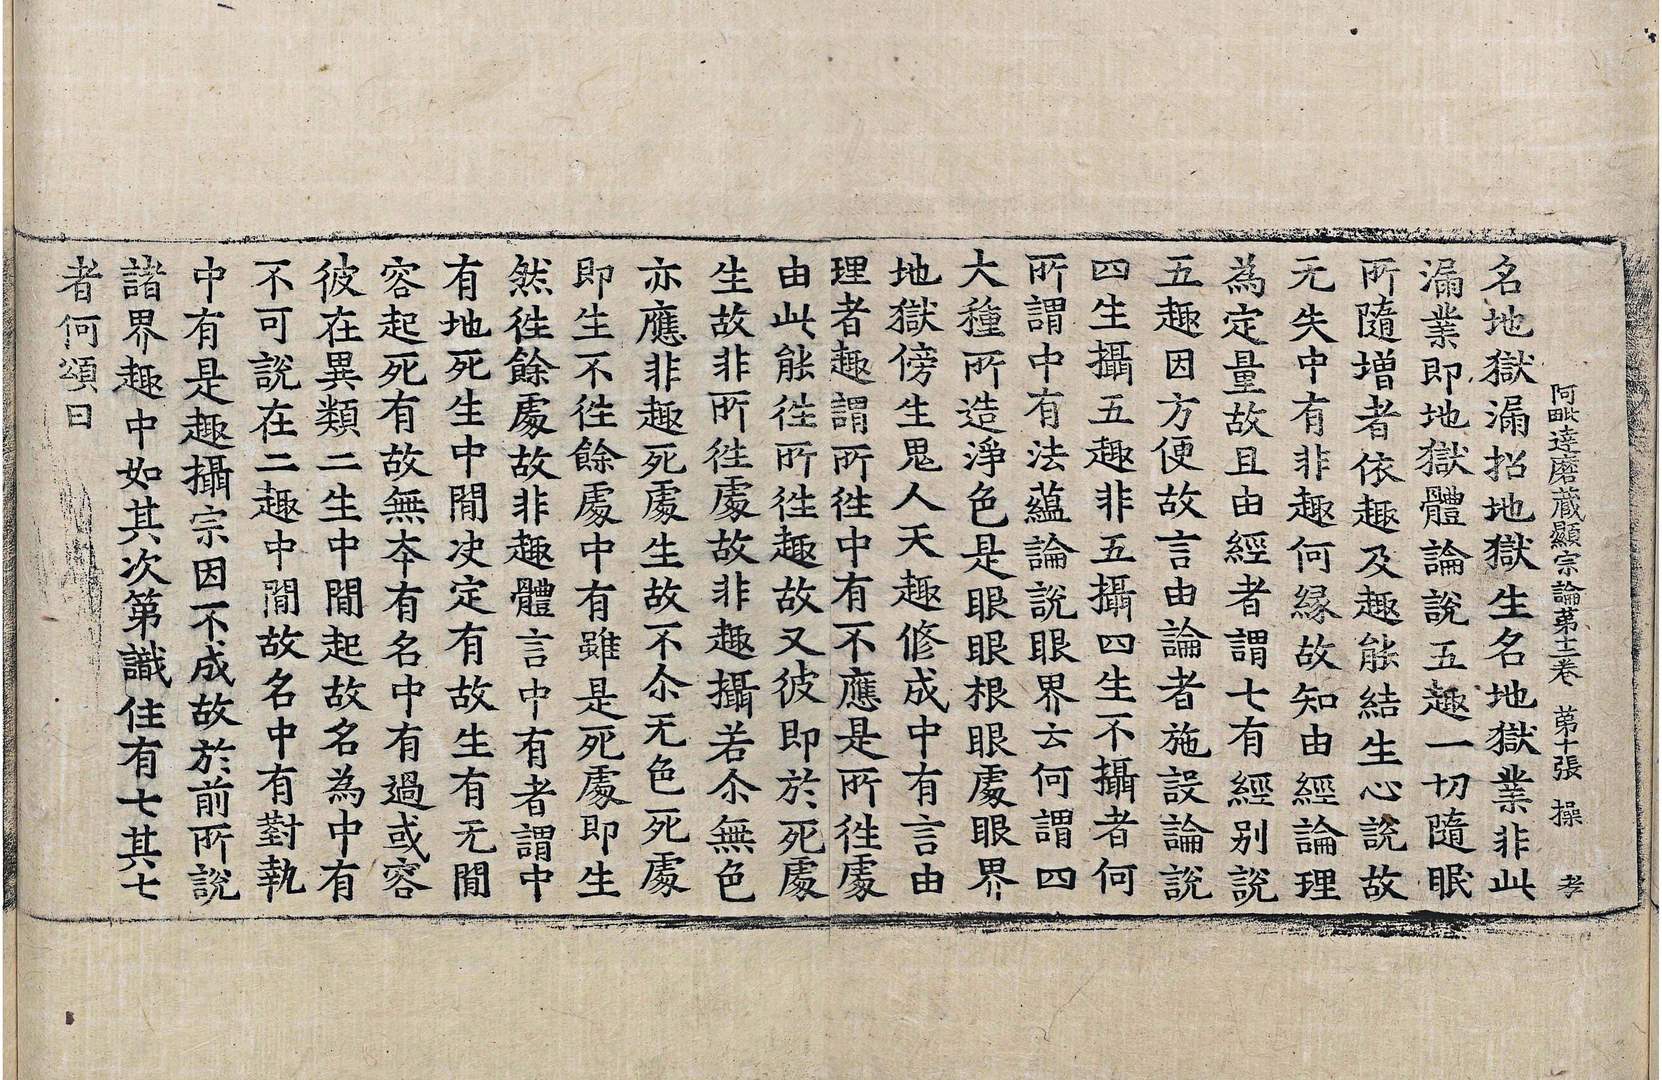 阿毗達磨藏顯宗論苐十二卷　苐十張　操　孝
名地獄漏招地獄生名地獄業非此
漏業即地獄體論說五趣一切隨眠
所隨增者依趣及趣能結生心說故
无失中有非趣何緣故知由經論理
為定量故且由經者謂七有經別說
五趣因方便故言由論者施設論說
四生攝五趣非五攝四生不攝者何
所謂中有法蘊論說眼界云何謂四
大種所造淨色是眼眼根眼處眼界
地獄傍生鬼人天趣修成中有言由
理者趣謂所徃中有不應是所徃處
由此能徃所徃趣故又彼即於死處
生故非所徃處故非趣攝若尒無色
亦應非趣死處生故不尒无色死處
即生不徃餘處中有雖是死處即生
然徃餘處故非趣體言中有者謂中
有地死生中閒决定有故生有无閒
容起死有故無夲有名中有過或容
彼在異類二生中閒起故名為中有
不可說在二趣中閒故名中有對執
中有是趣攝宗因不成故於前所說
諸界趣中如其次第識住有七其七
者何頌曰